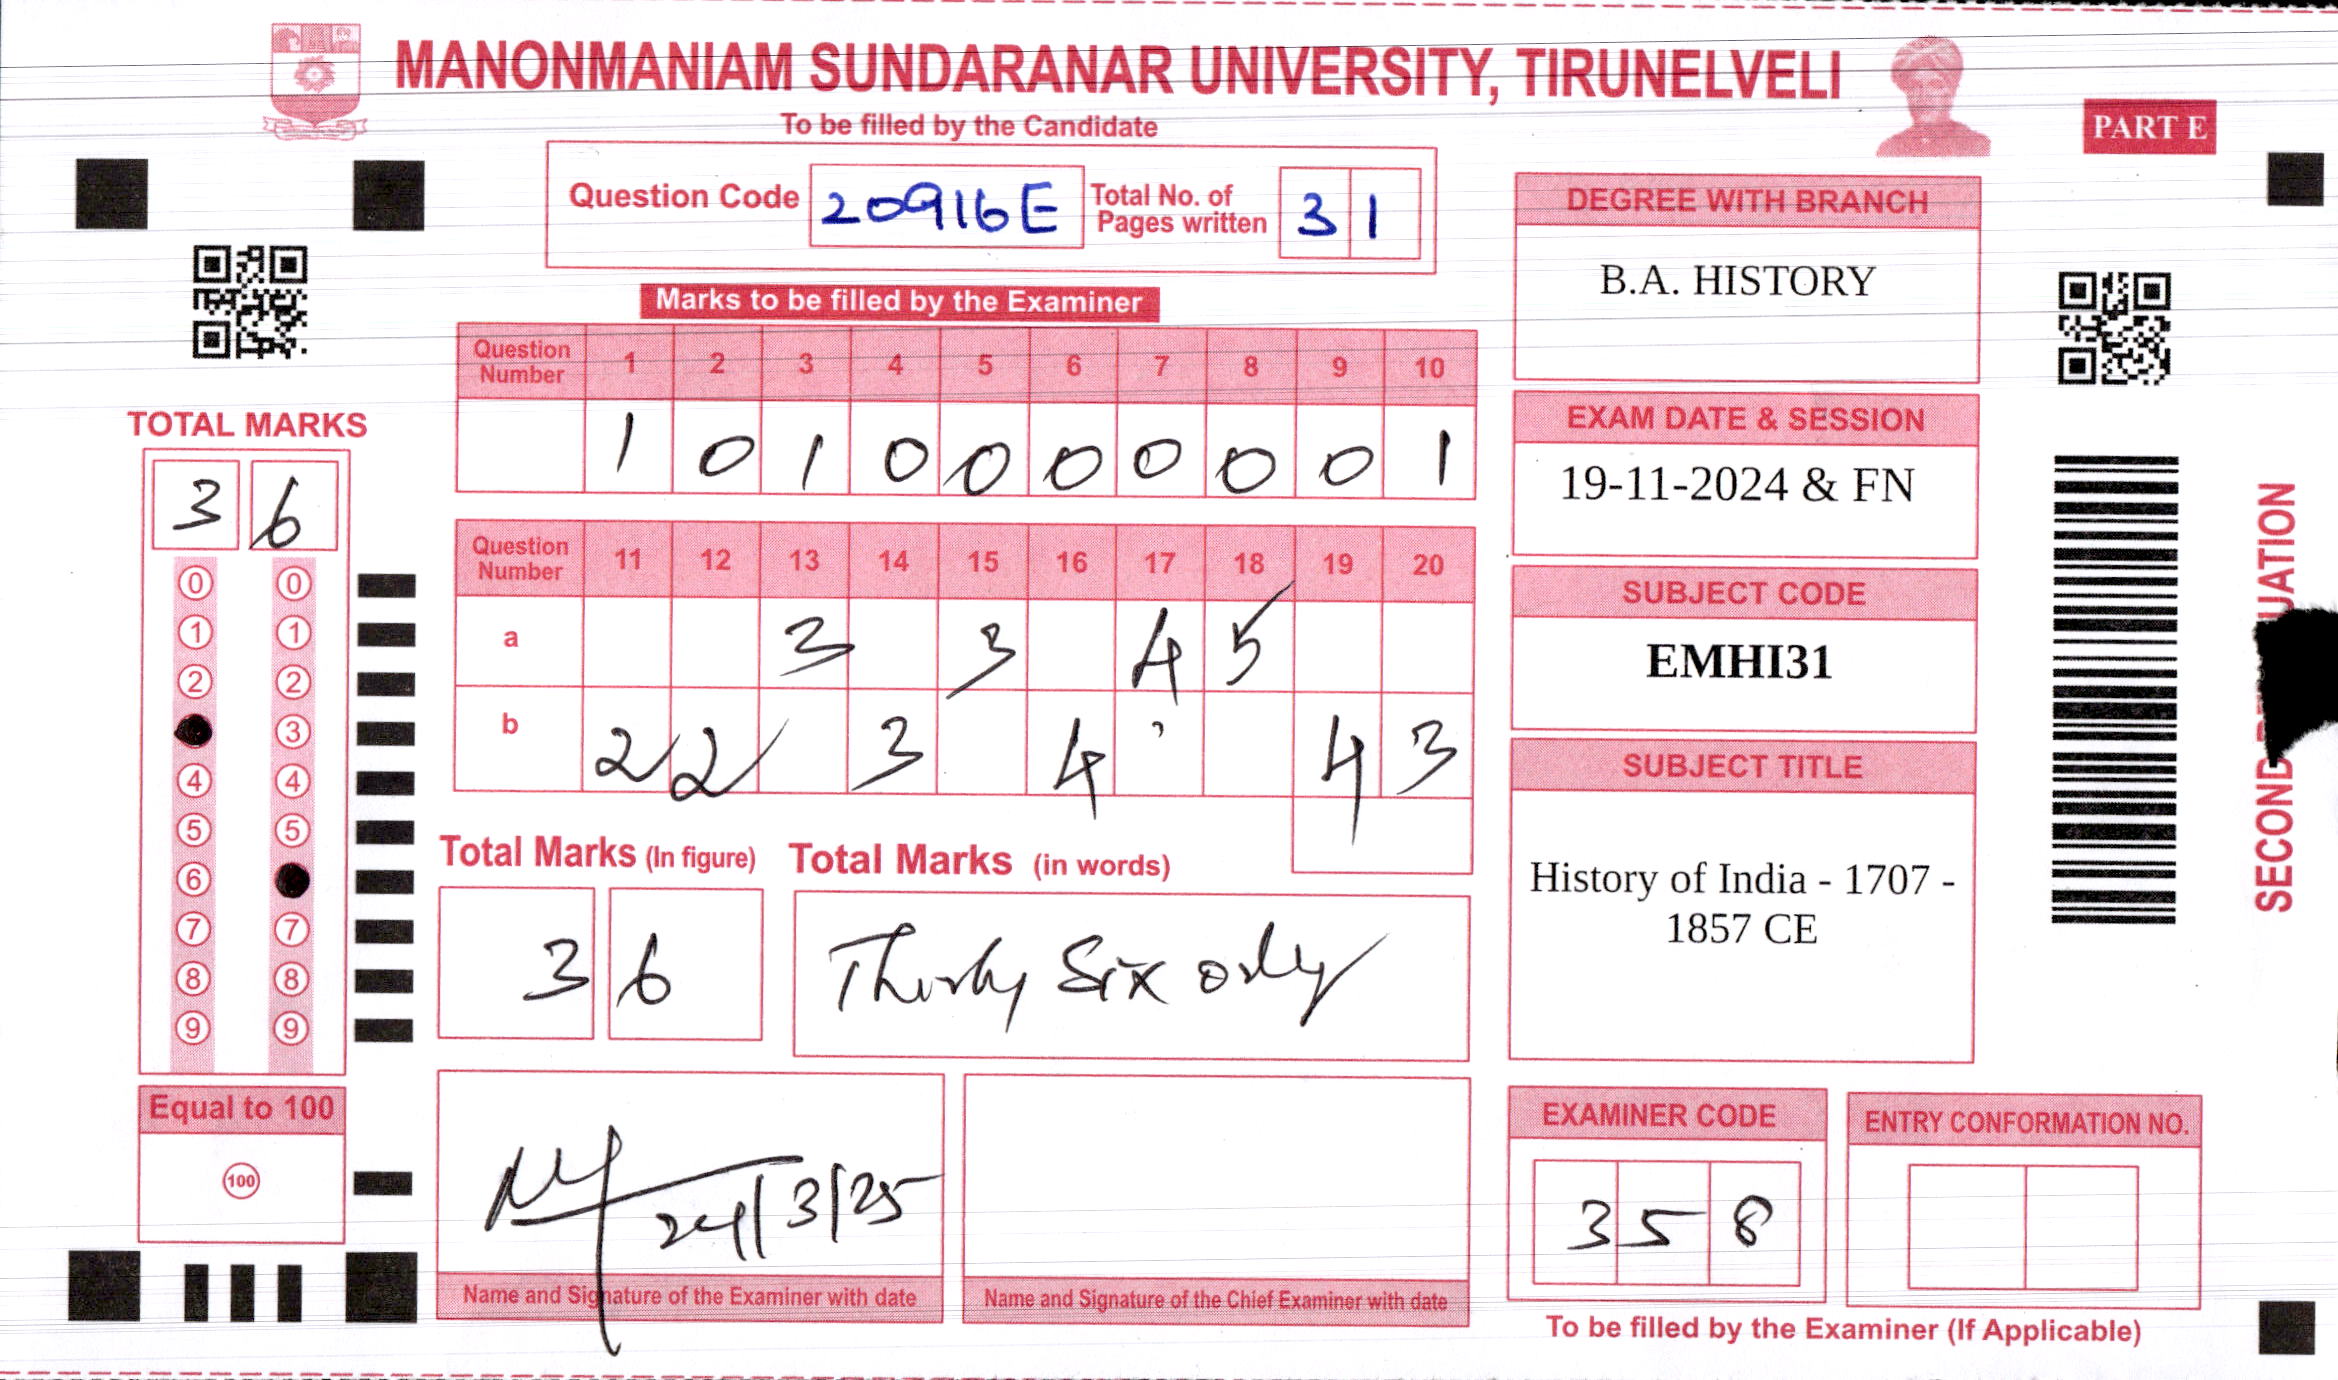 MANONMANIAM SUNDARANAR UNIVERSITY, TIRUNELVELI
To be filled by the Candidate
PART E
Question Code 20916E Total No. of Pages written 3 1
Marks to be filled by the Examiner
Question Number 1 2 3 4 5 6 7 8 9 10
1 0 1 0 0 0 0 0 0 1
Question Number 11 12 13 14 15 16 17 18 19 20
a 3 3 4 5
b 2 2 3 4 4 3
Total Marks (In figure) Total Marks (in words)
3 6 Thirty Six only
24/3/25
Name and Signature of the Examiner with date
Name and Signature of the Chief Examiner with date
TOTAL MARKS
3 6
0 0
1 1
2 2
3
4 4
5 5
6
7 7
8 8
9 9
Equal to 100
100
DEGREE WITH BRANCH
B.A. HISTORY
EXAM DATE & SESSION
19-11-2024 & FN
SUBJECT CODE
EMHI31
SUBJECT TITLE
History of India - 1707 -
1857 CE
EXAMINER CODE
3 5 8
ENTRY CONFORMATION NO.
To be filled by the Examiner (If Applicable)
SECOND